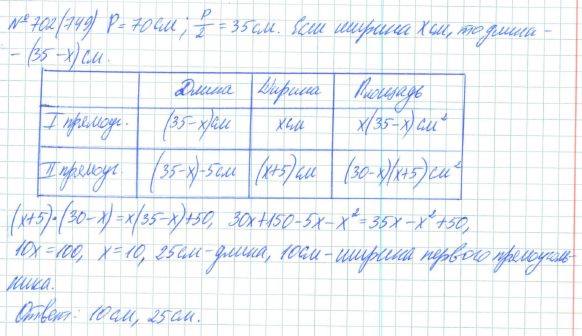 № 702 (749) P = 70 см; P/2 = 35 см. Если ширина x см, то длина -
- (35 - x) см.
Длина Ширина Площадь
I прямоуг. (35-x) см x см x(35-x) см²
II прямоуг. (35-x)-5 см (x+5) см (30-x)(x+5) см²
(x+5)·(30-x)=x(35-x)+50, 30x+150-5x-x²=35x-x²+50,
10x=100, x=10, 25 см - длина, 10 см - ширина первого прямоуголь-
ника.
Ответ: 10 см, 25 см.